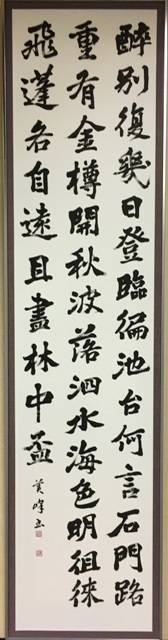 醉別復幾日登臨徧池台何言石門路
重有金樽開秋波落泗水海色明徂徠
飛蓬各自遠且盡林中盃